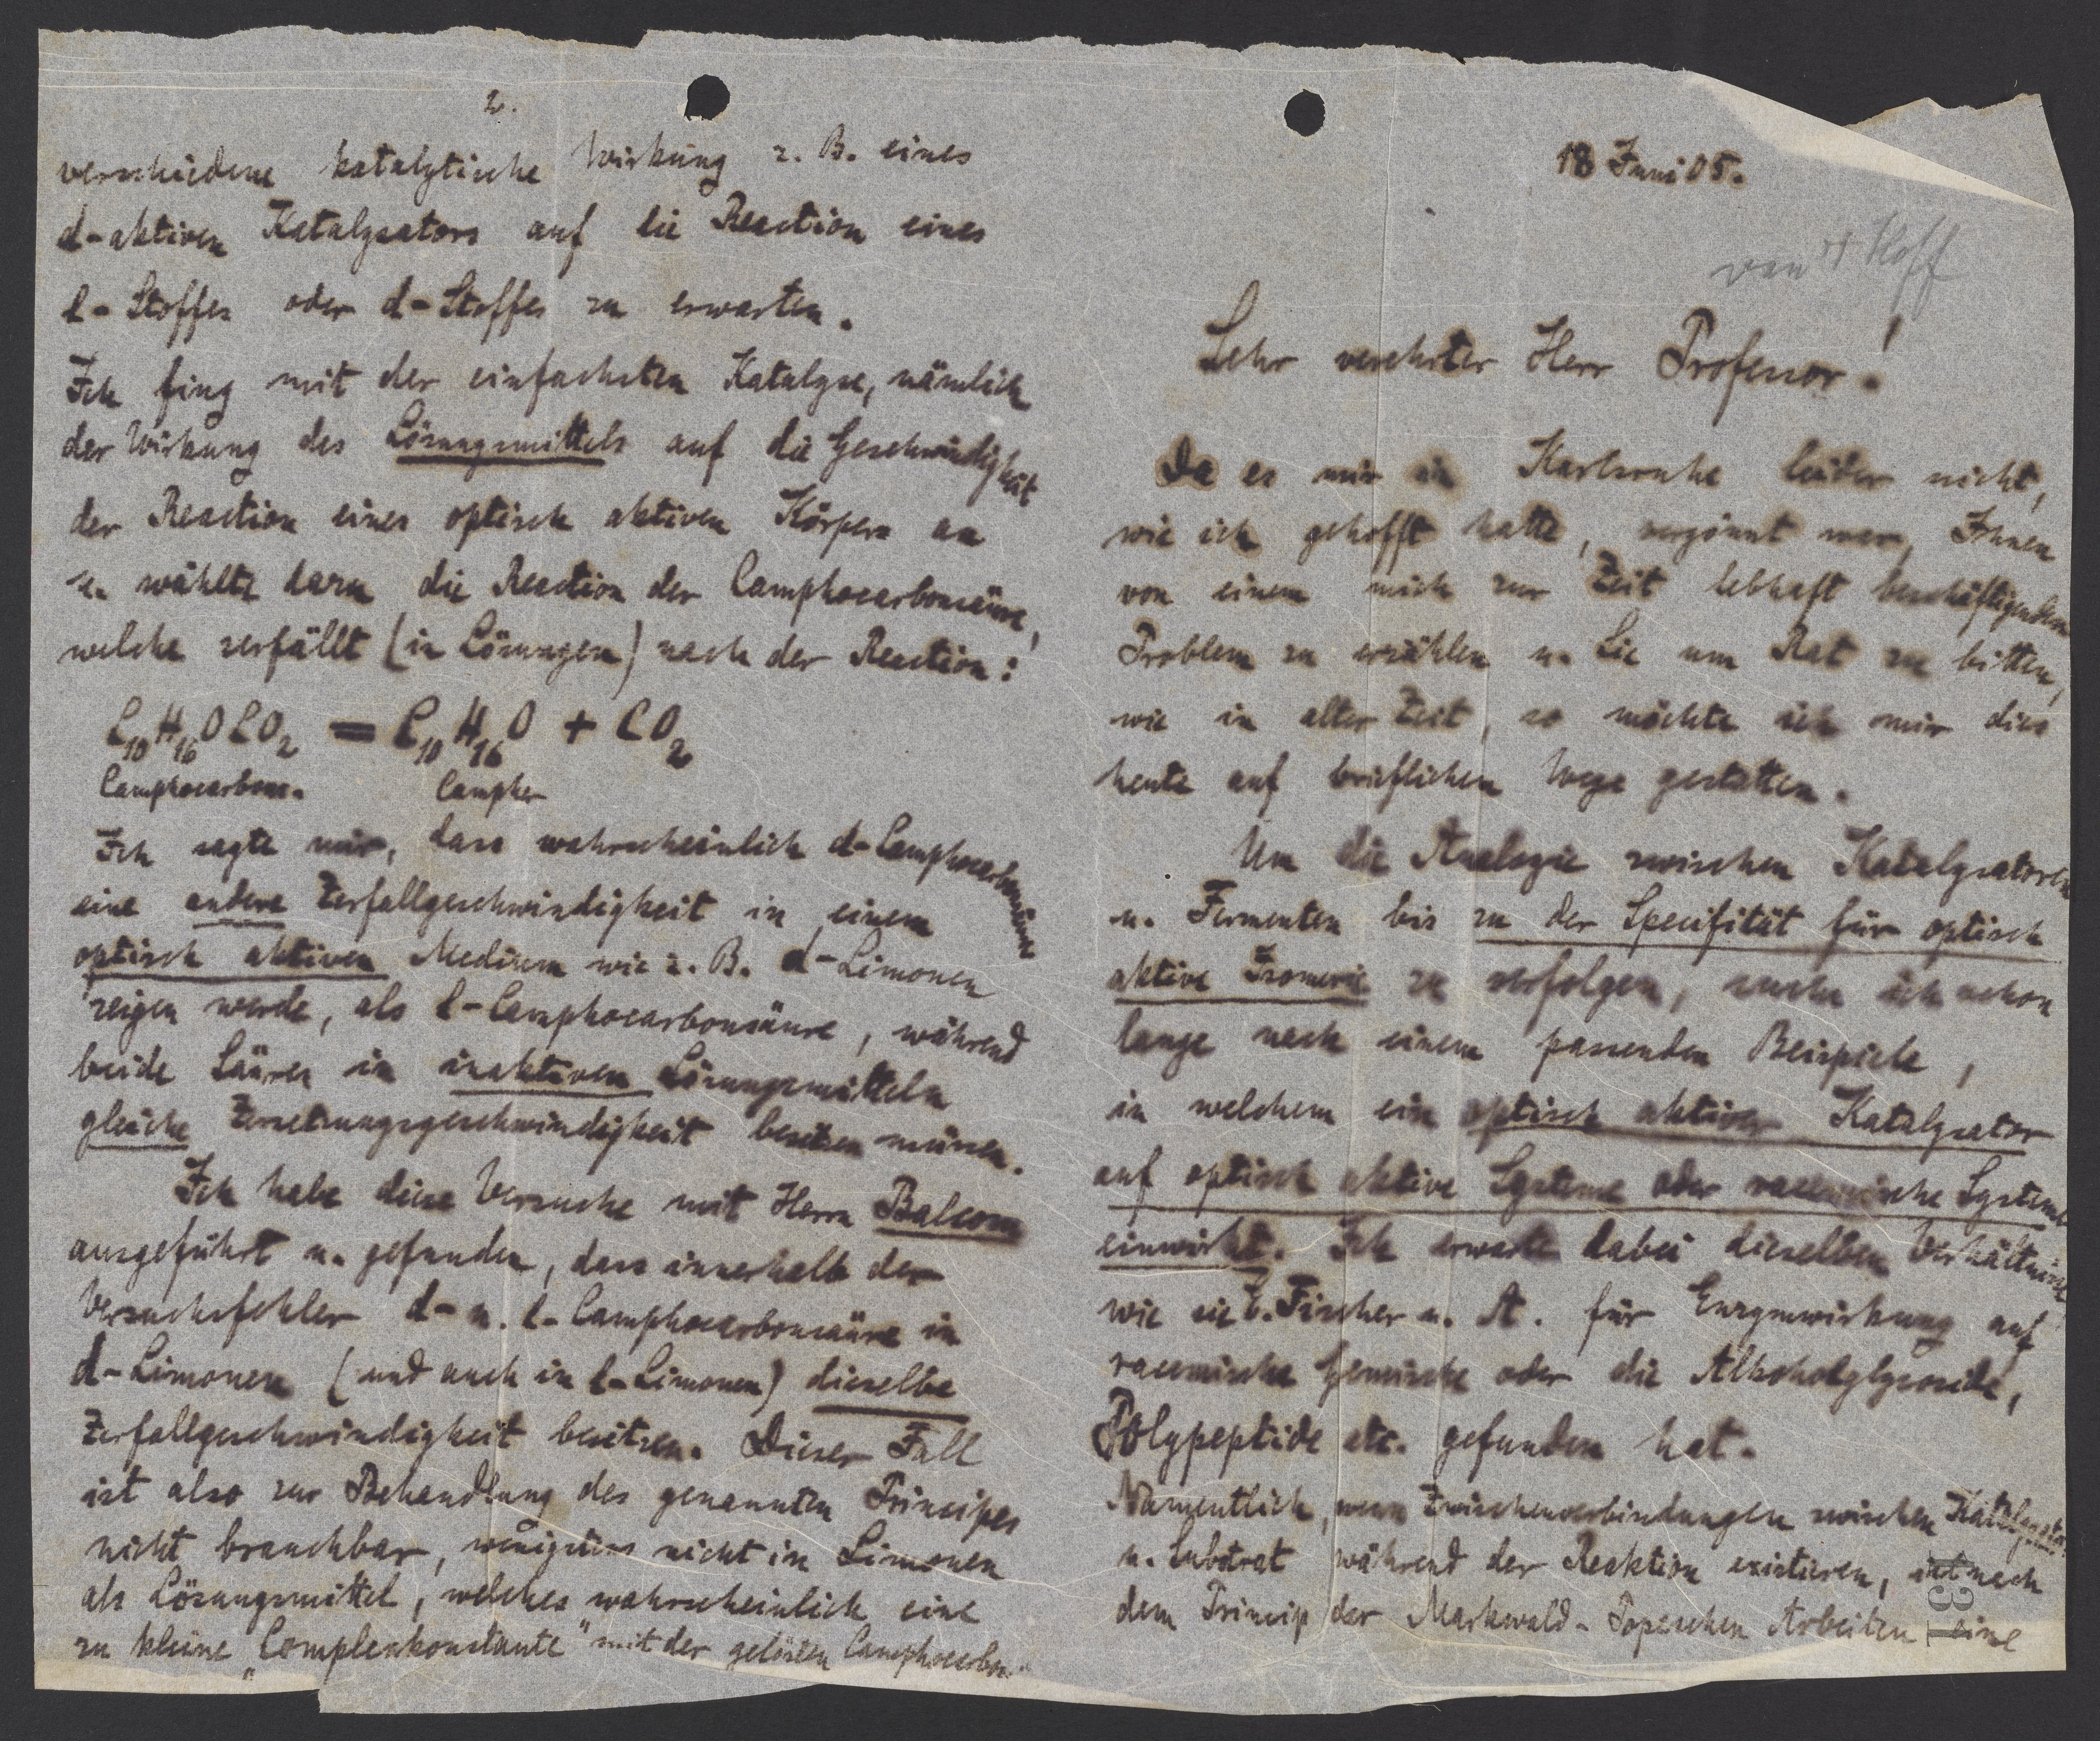 18 Juni 05.
van't Hoff
Sehr verehrter Herr Professor!
Da es mir in Karlsruhe leider nicht,
wie ich gehofft hatte, vergönnt war, Ihnen
von einem mich zur Zeit lebhaft beschäftigenden
Problem zu erzählen u. Sie um Rat zu bitten,
wie in alter Zeit, so möchte ich mir dies
heute auf brieflichem Wege gestatten.
Um die Analogie zwischen Katalysatoren
u. Fermenten bis zu der Specifität für optisch
aktive Isomerie zu verfolgen, suche ich schon
lange nach einem passenden Beispiele,
in welchem ein optisch aktiver Katalysator
auf optisch aktive Systeme oder racemische Systeme
einwirkt. Ich erwarte dabei dieselben Verhältnisse
wie sie E. Fischer u. A. für Enzymwirkung auf
racemische Gemische oder die Alkoholglycoside,
Polypeptide etc. gefunden hat.
Namentlich, wenn Zwischenverbindungen zwischen Katalysator
u. Substrat während der Reaktion existieren, ist nach
dem Princip der Markwald-Popeschen Arbeiten eine
131
2.
verschiedene katalytische Wirkung z. B. eines
d-aktiven Katalysators auf die Reaction eines
l-Stoffes oder d-Stoffes zu erwarten.
Ich fing mit der einfachsten Katalyse, nämlich
der Wirkung des Lösungsmittels auf die Geschwindigkeit
der Reaction eines optisch aktiven Körpers an
u. wählte dazu die Reaction der Camphocarbonsäure,
welche zerfällt (in Lösungen) nach der Reaction:
C10H16OCO2 = C10H16O + CO2
Camphocarbons. Campher
Ich sagte mir, dass wahrscheinlich d-Camphocarbonsäure
eine andere Zerfallgeschwindigkeit in einem
optisch aktiven Medium wie z. B. d-Limonen
zeigen werde, als l-Camphocarbonsäure, während
beide Säuren in inaktiven Lösungsmitteln
gleiche Zersetzungsgeschwindigkeit besitzen müssen.
Ich habe diese Versuche mit Herrn Balcom
ausgeführt u. gefunden, dass innerhalb der
Versuchsfehler d- u. l-Camphocarbonsäure in
d-Limonen (und auch in l-Limonen) dieselbe
Zerfallgeschwindigkeit besitzen. Dieser Fall
ist also zur Behandlung des genannten Principes
nicht brauchbar, wenigstens nicht in Limonen
als Lösungsmittel, welches wahrscheinlich eine
zu kleine „Complexkonstante" mit der gelösten Camphocarbon-